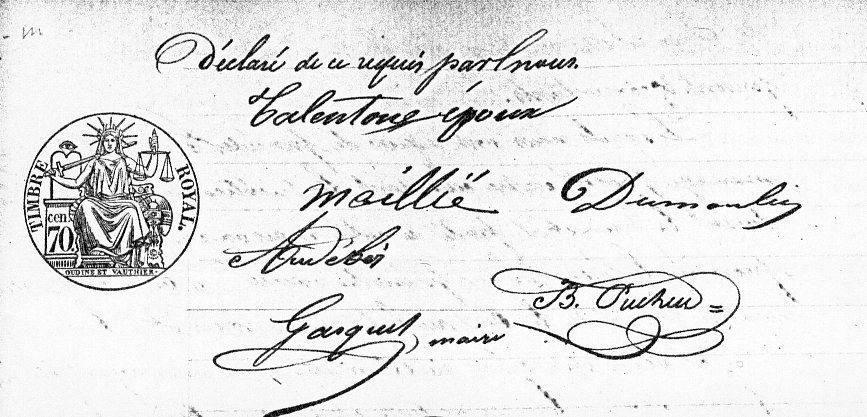 Déclaré de ce requis par nous.
Talentone époux
TIMBRE ROYAL.
cen.
70.
OUDINÉ ET VAUTHIER.
Maillié Dumoulin
Audebés
B. Pucheu
Gasquet, maire